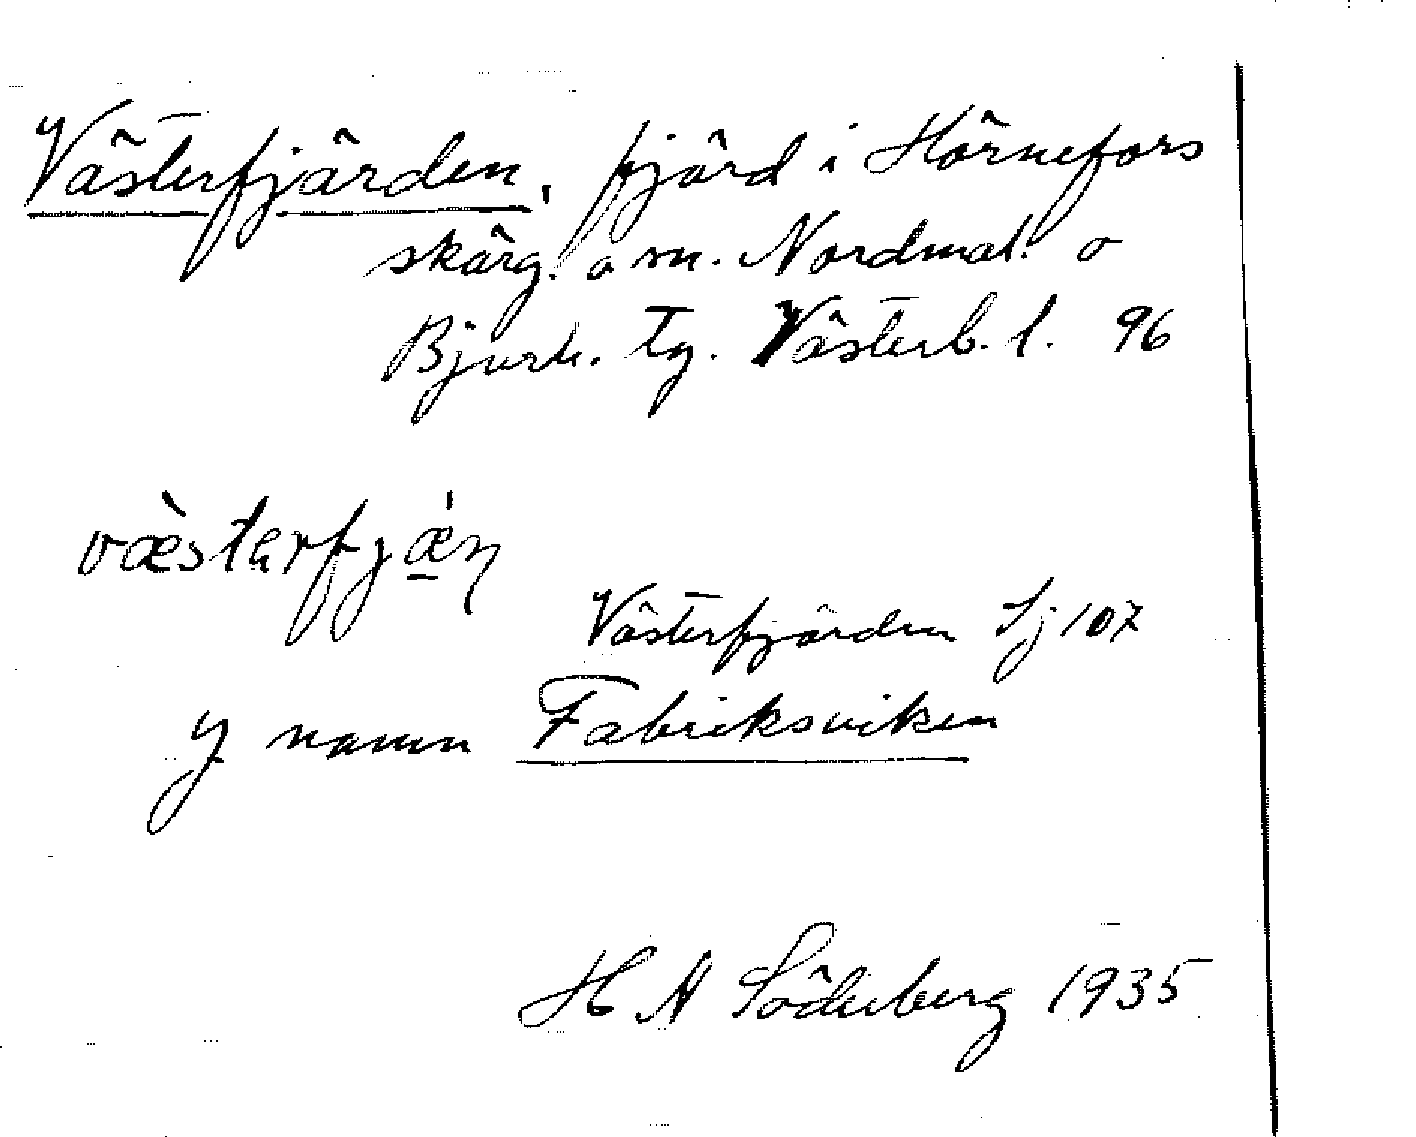 Västerfjärden, fjärd i Hörnefors
skärg. o sn. Nordmal. o
Bjurh. tg. Västerb. l. 96
væ̀stərfjǽṇ
Västerfjärden Sj 107
Yngre namn Fabriksviken
H A Söderberg 1935